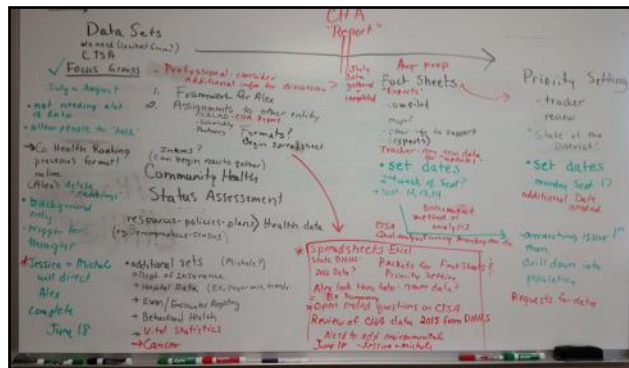 CHA
"Report"
Data Sets
we need
CTSA
✓ Focus Groups
July - August
• not needing alot of data
• allow people to "talk"
→ Co. Health Ranking
previous format
online
(Alex) delete
• background
only
• trigger for
thought
* Jessica + Michele
will direct
Alex
complete
June 18
- Professional - consider
additional info for discussion
1. Framework for Alex
2. Assignments to other entity
Formats?
Begin spreadsheet
(can begin now to gather)
Community Health
Status Assessment
resources-policies-plans > Health data
(eg. Demographics-census)
• additional sets (Michele?)
→ Dept. of Insurance
→ Hospital Data
→ Behavioral Health
→ Vital Statistics
→ Cancer
July
Data
gathered
completed
Aug prep
Fact Sheets
"Experts"
- compiled
major
- other info to support
(experts)
Tracker - any new data
to update
• set dates
2nd week of Sept?
→ Sept. 12, 13, 14
Document
method of
analysis
CTSA
* Spreadsheets Excel
State DHHS
Data?
Packets for Fact Sheets &
Priority Setting
* Open ended questions on CTSA
Review of CHA data 2015 from DHHS
Need to add environmental
June 18 - Jessica + Michele
Priority Setting
- tracker
review
"State of the
District"
• set dates
Monday Sept. 17
additional Date
needed
- overarching issue 1st
then,
drill down into
population
Requests for data